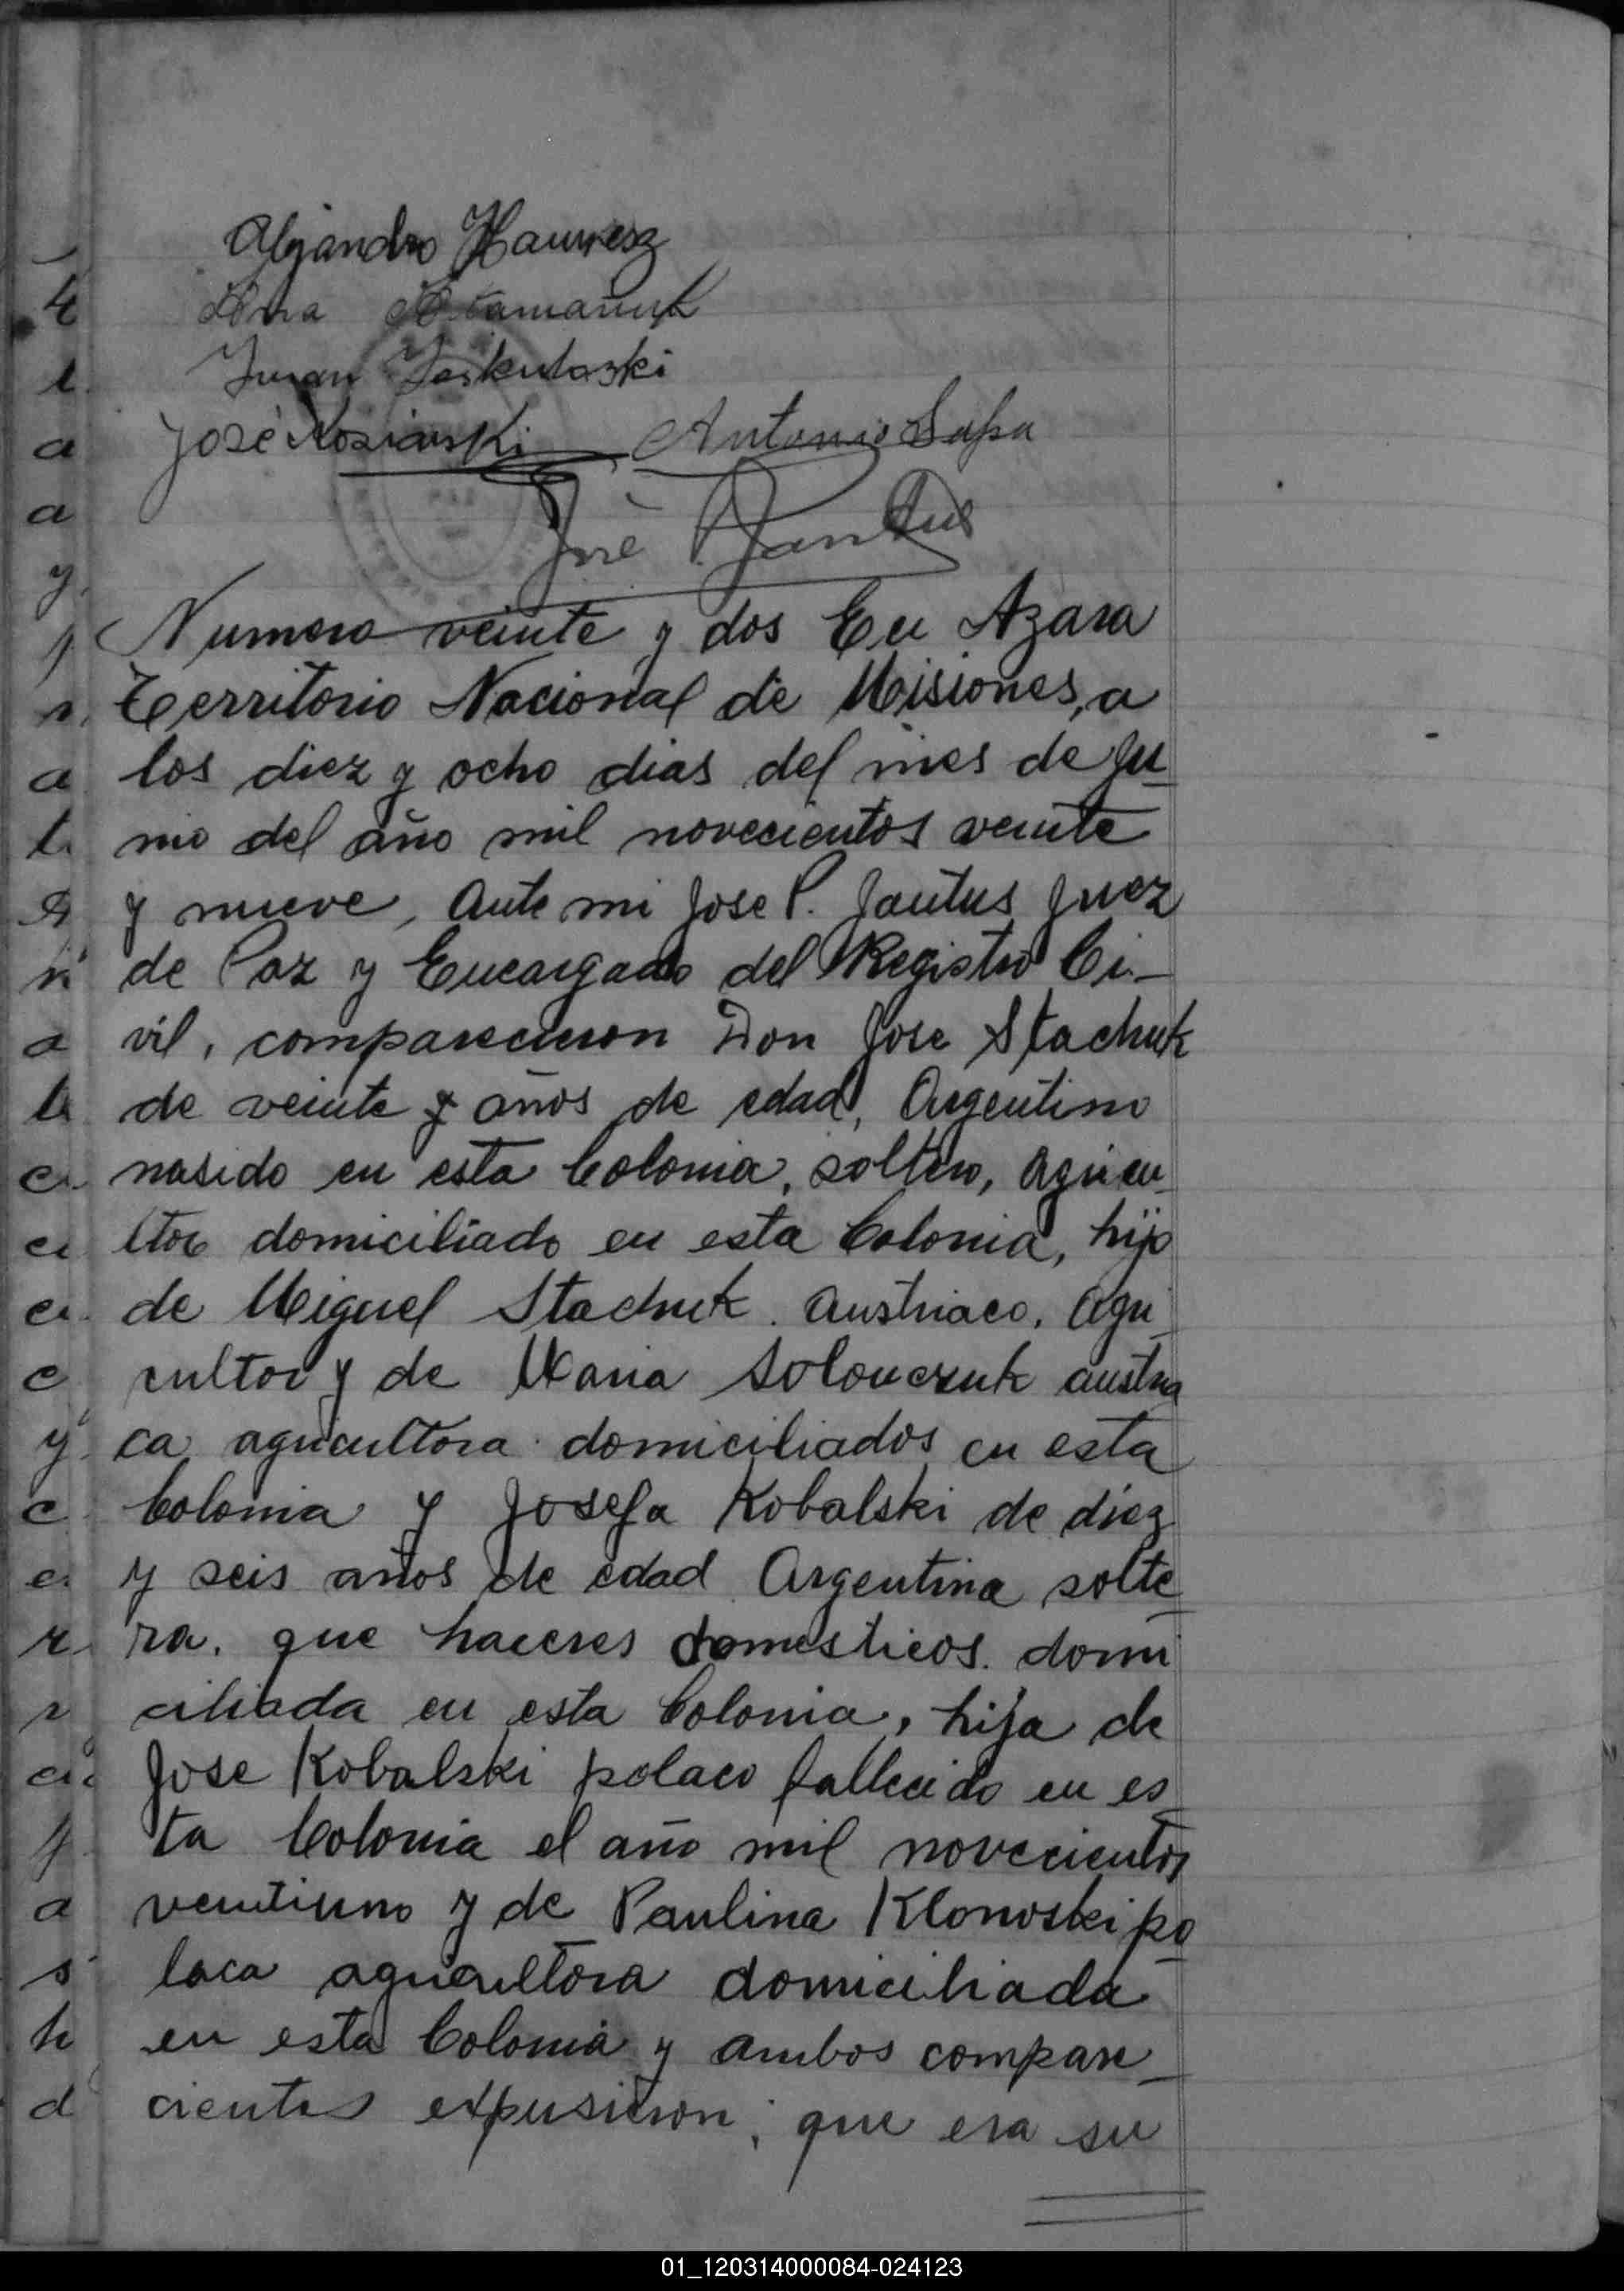 Alejandro
Juan
José Antonio Supa
José P. Jantus
Numero veinte y dos En Azara
Territorio Nacional de Misiones, a
los diez y ocho dias del mes de Ju
nio del año mil novecientos veinte
y nueve, Ante mi Jose P. Jantus Juez
de Paz y Encargado del Registro Ci-
vil, comparecieron Don Jose Stachuk
de veinte y años de edad, Argentino
nasido en esta Colonia, soltero, agricu
ltor domiciliado en esta Colonia, hijo
de Miguel Stachuk. Austriaco, Agri
cultor y de Maria Solonczuk austria
ca agricultora domiciliados en esta
Colonia y Josefa Kobalski de diez
y seis años de edad Argentina solte
ra. que haceres domesticos. domi
ciliada en esta Colonia, hija de
Jose Kobalski polaco fallecido en es
ta Colonia el año mil novecientos
ventiuno y de Paulina Klonoski po
laca agricultora domiciliada
en esta Colonia y ambos compare
cientes expusieron; que era su
01_120314000084-024123